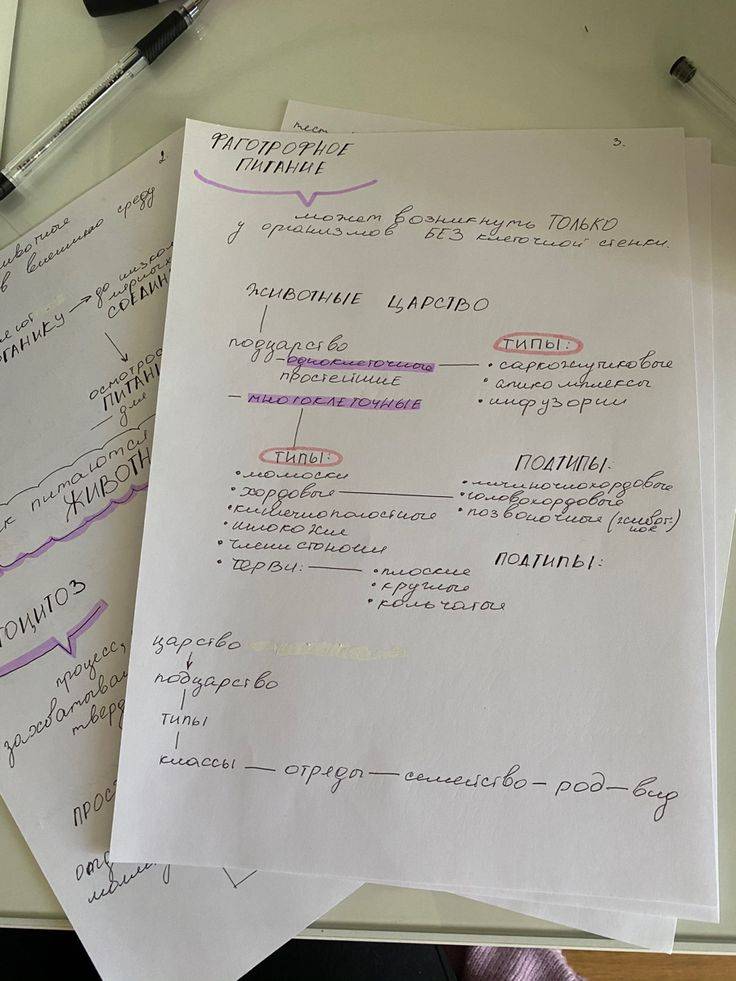 3.
ФАГОТРОФНОЕ
ПИТАНИЕ
может возникнуть ТОЛЬКО
у организмов БЕЗ клеточной стенки.
ЖИВОТНЫЕ ЦАРСТВО
подцарство
- одноклеточные
простейшие
- МНОГОКЛЕТОЧНЫЕ
ТИПЫ:
• саркожгутиковые
• апикомплексы
• инфузории
ТИПЫ:
• хордовые
• кишечнополостные
• иглокожие
• членистоногие
• черви:
ПОДТИПЫ:
• личиночнохордовые
• головохордовые
• позвоночные
ПОДТИПЫ:
• плоские
• круглые
• кольчатые
царство
подцарство
типы
классы — отряды — семейство — род — вид
2.
в внешнюю среду
до низкомо
СОЕДИН
осмотроф
ПИТАНИ
питаются
ЖИВОТН
процесс,
захватыва
тверд
ПРОС
тест